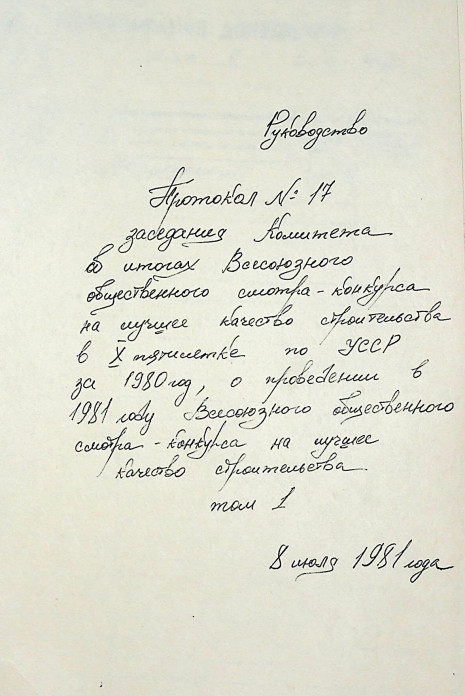 Руководство
Протокол № 17
заседания Комитета
об итогах Всесоюзного
общественного смотра-конкурса
на лучшее качество строительства
в X пятилетке по УССР
за 1980 год, о проведении в
1981 году Всесоюзного общественного
смотра-конкурса на лучшее
качество строительства.
том 1
8 июля 1981 года